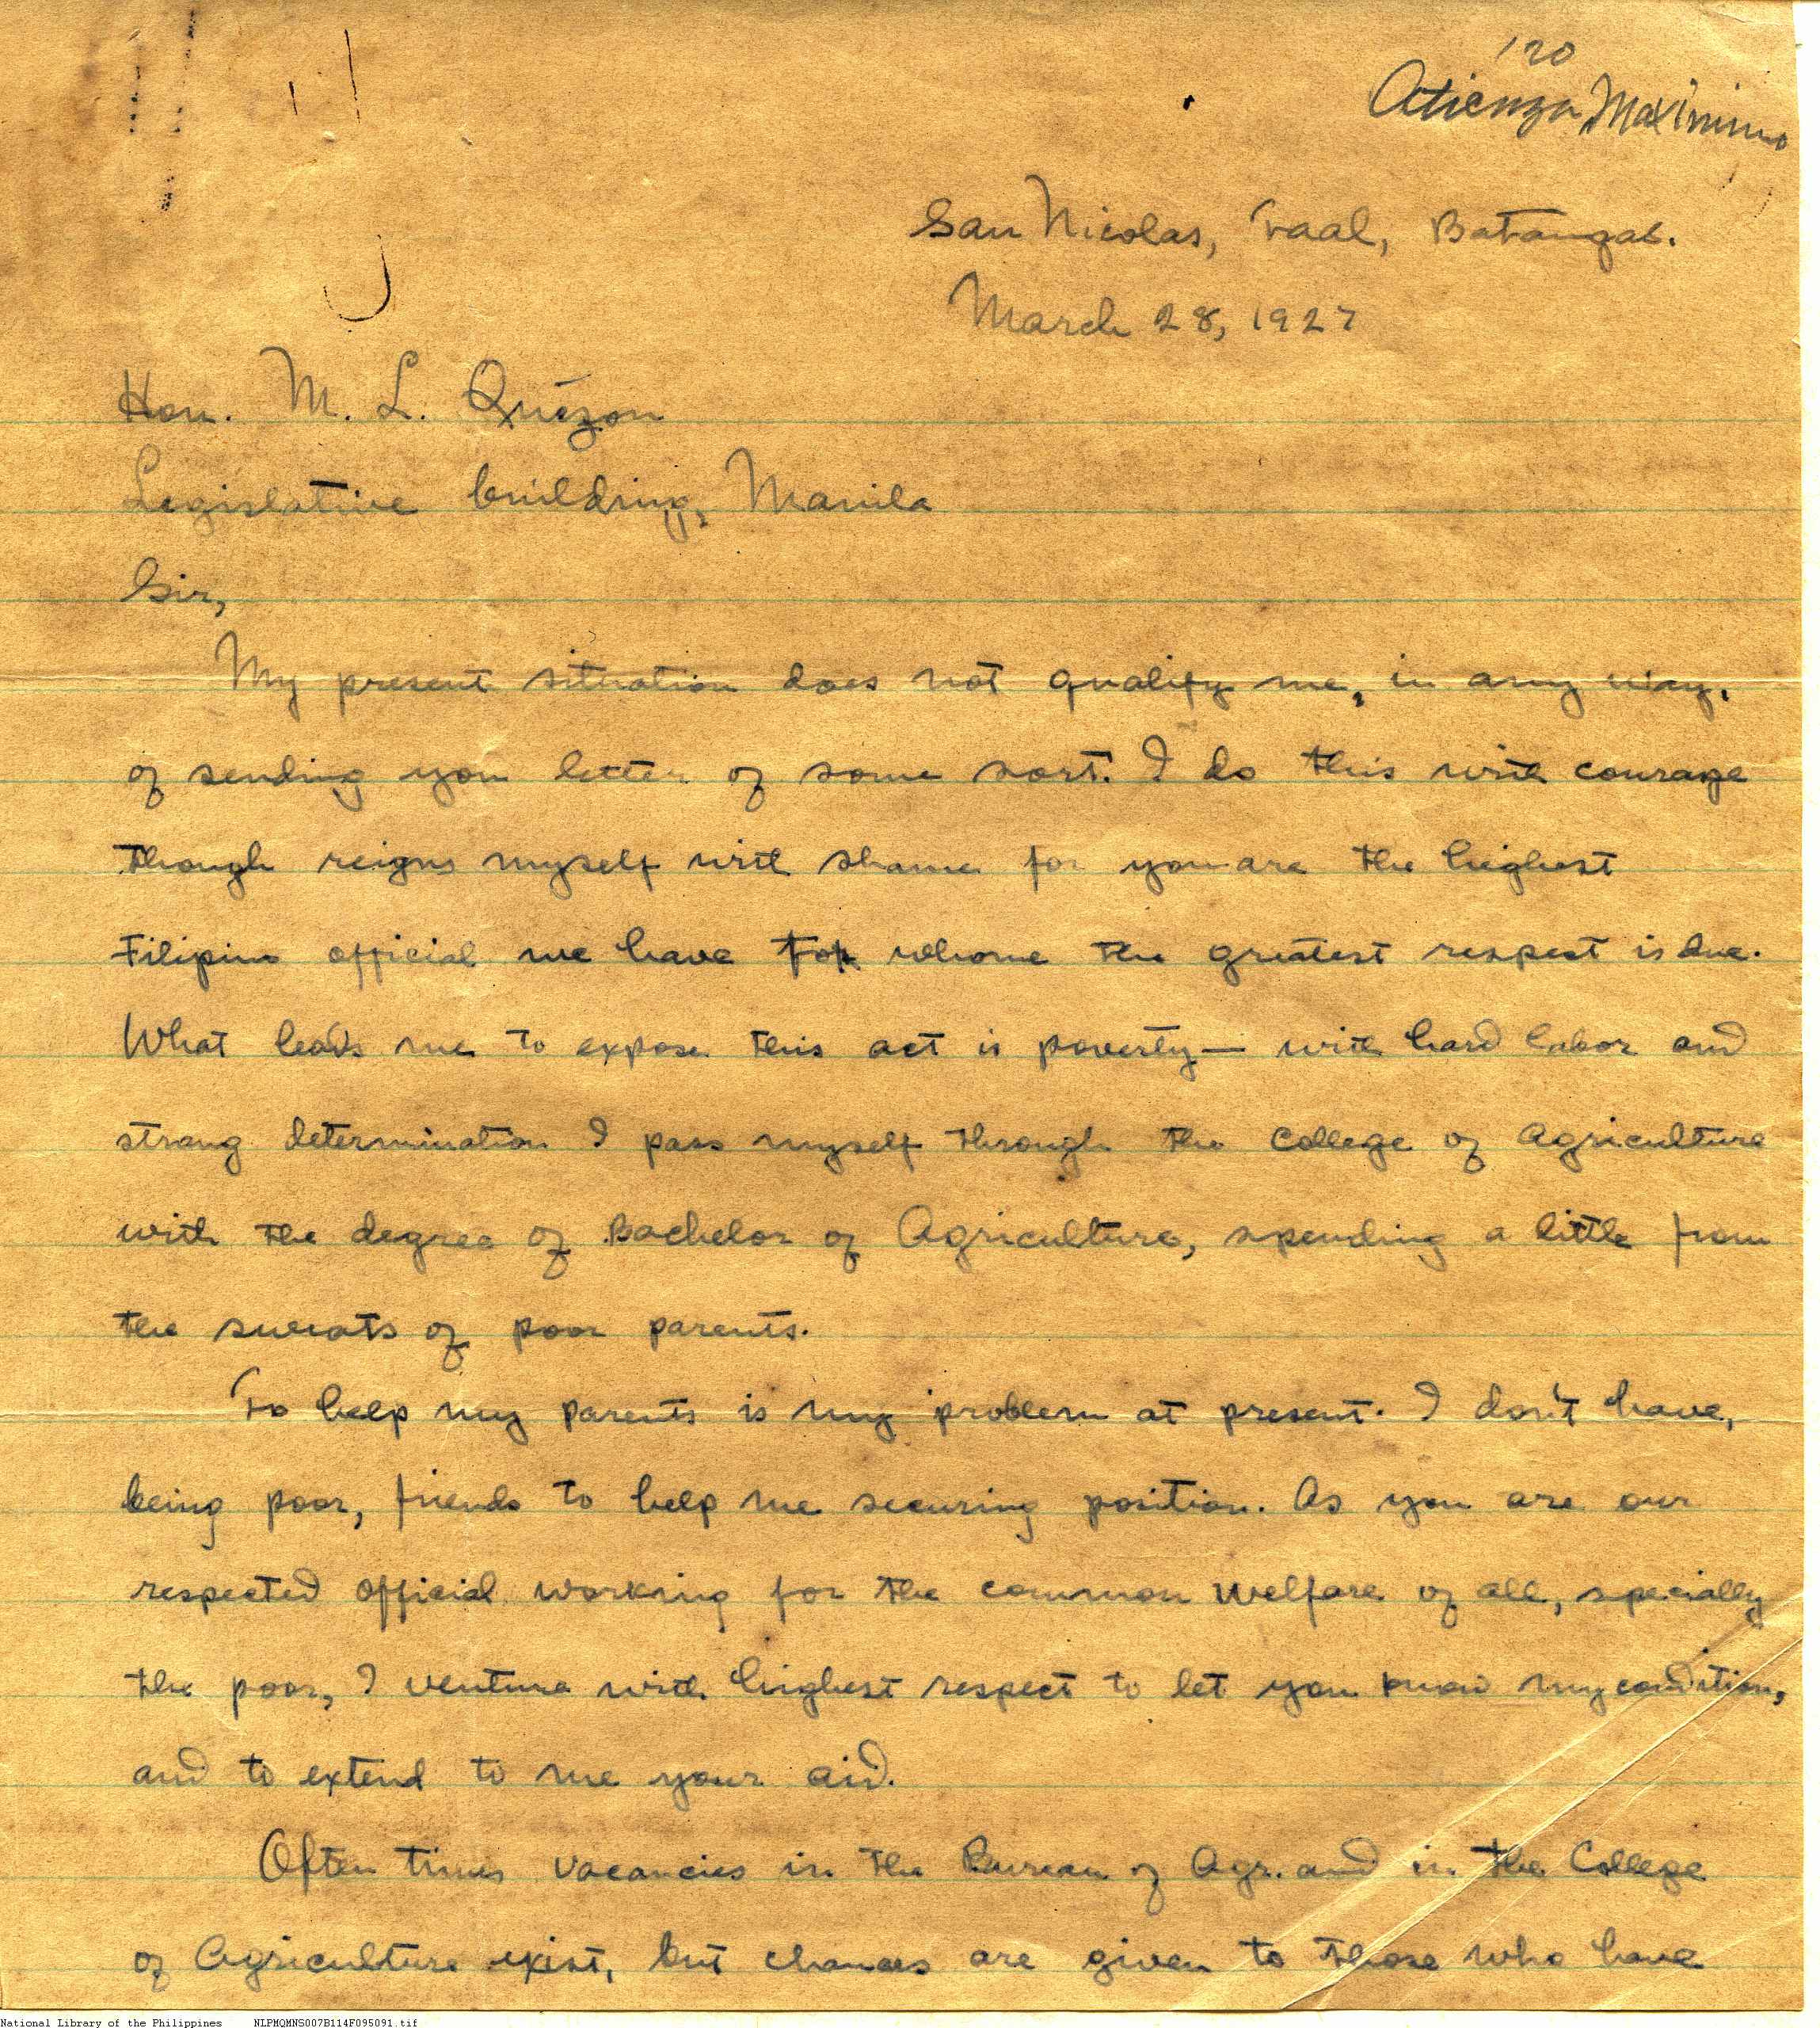 '20
Atienza Maximino
San Nicolas, Taal, Batangas.
March 28, 1927
Hon. M. L. Quezon
Legislative building, Manila
Sir,
My present situation does not qualify me, in any way,
of sending you letter of some sort. I do this with courage
though reigns myself with shame for you are the highest
Filipino official we have for whome the greatest respect is due.
What leads me to expose this act is poverty — with hard labor and
strong determination I pass myself through the College of Agriculture
with the degree of Bachelor of Agriculture, spending a little from
the sweats of poor parents.
To help my parents is my problem at present. I don't have,
being poor, friends to help me securing position. As you are our
respected official working for the common welfare of all, specially
the poor, I venture with highest respect to let you know my condition,
and to extend to me your aid.
Often times vacancies in the Bureau of Agr. and in the College
of Agriculture exist, but chances are given to those who have
National Library of the Philippines NLPMQMNS007B114F095091.tif